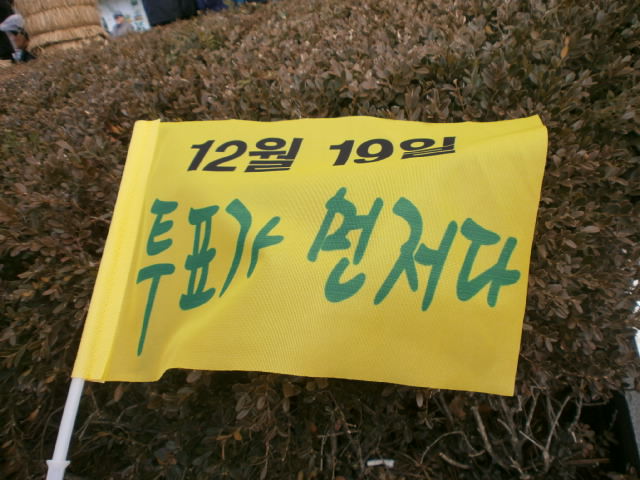 12월 19일
투표가 먼저다